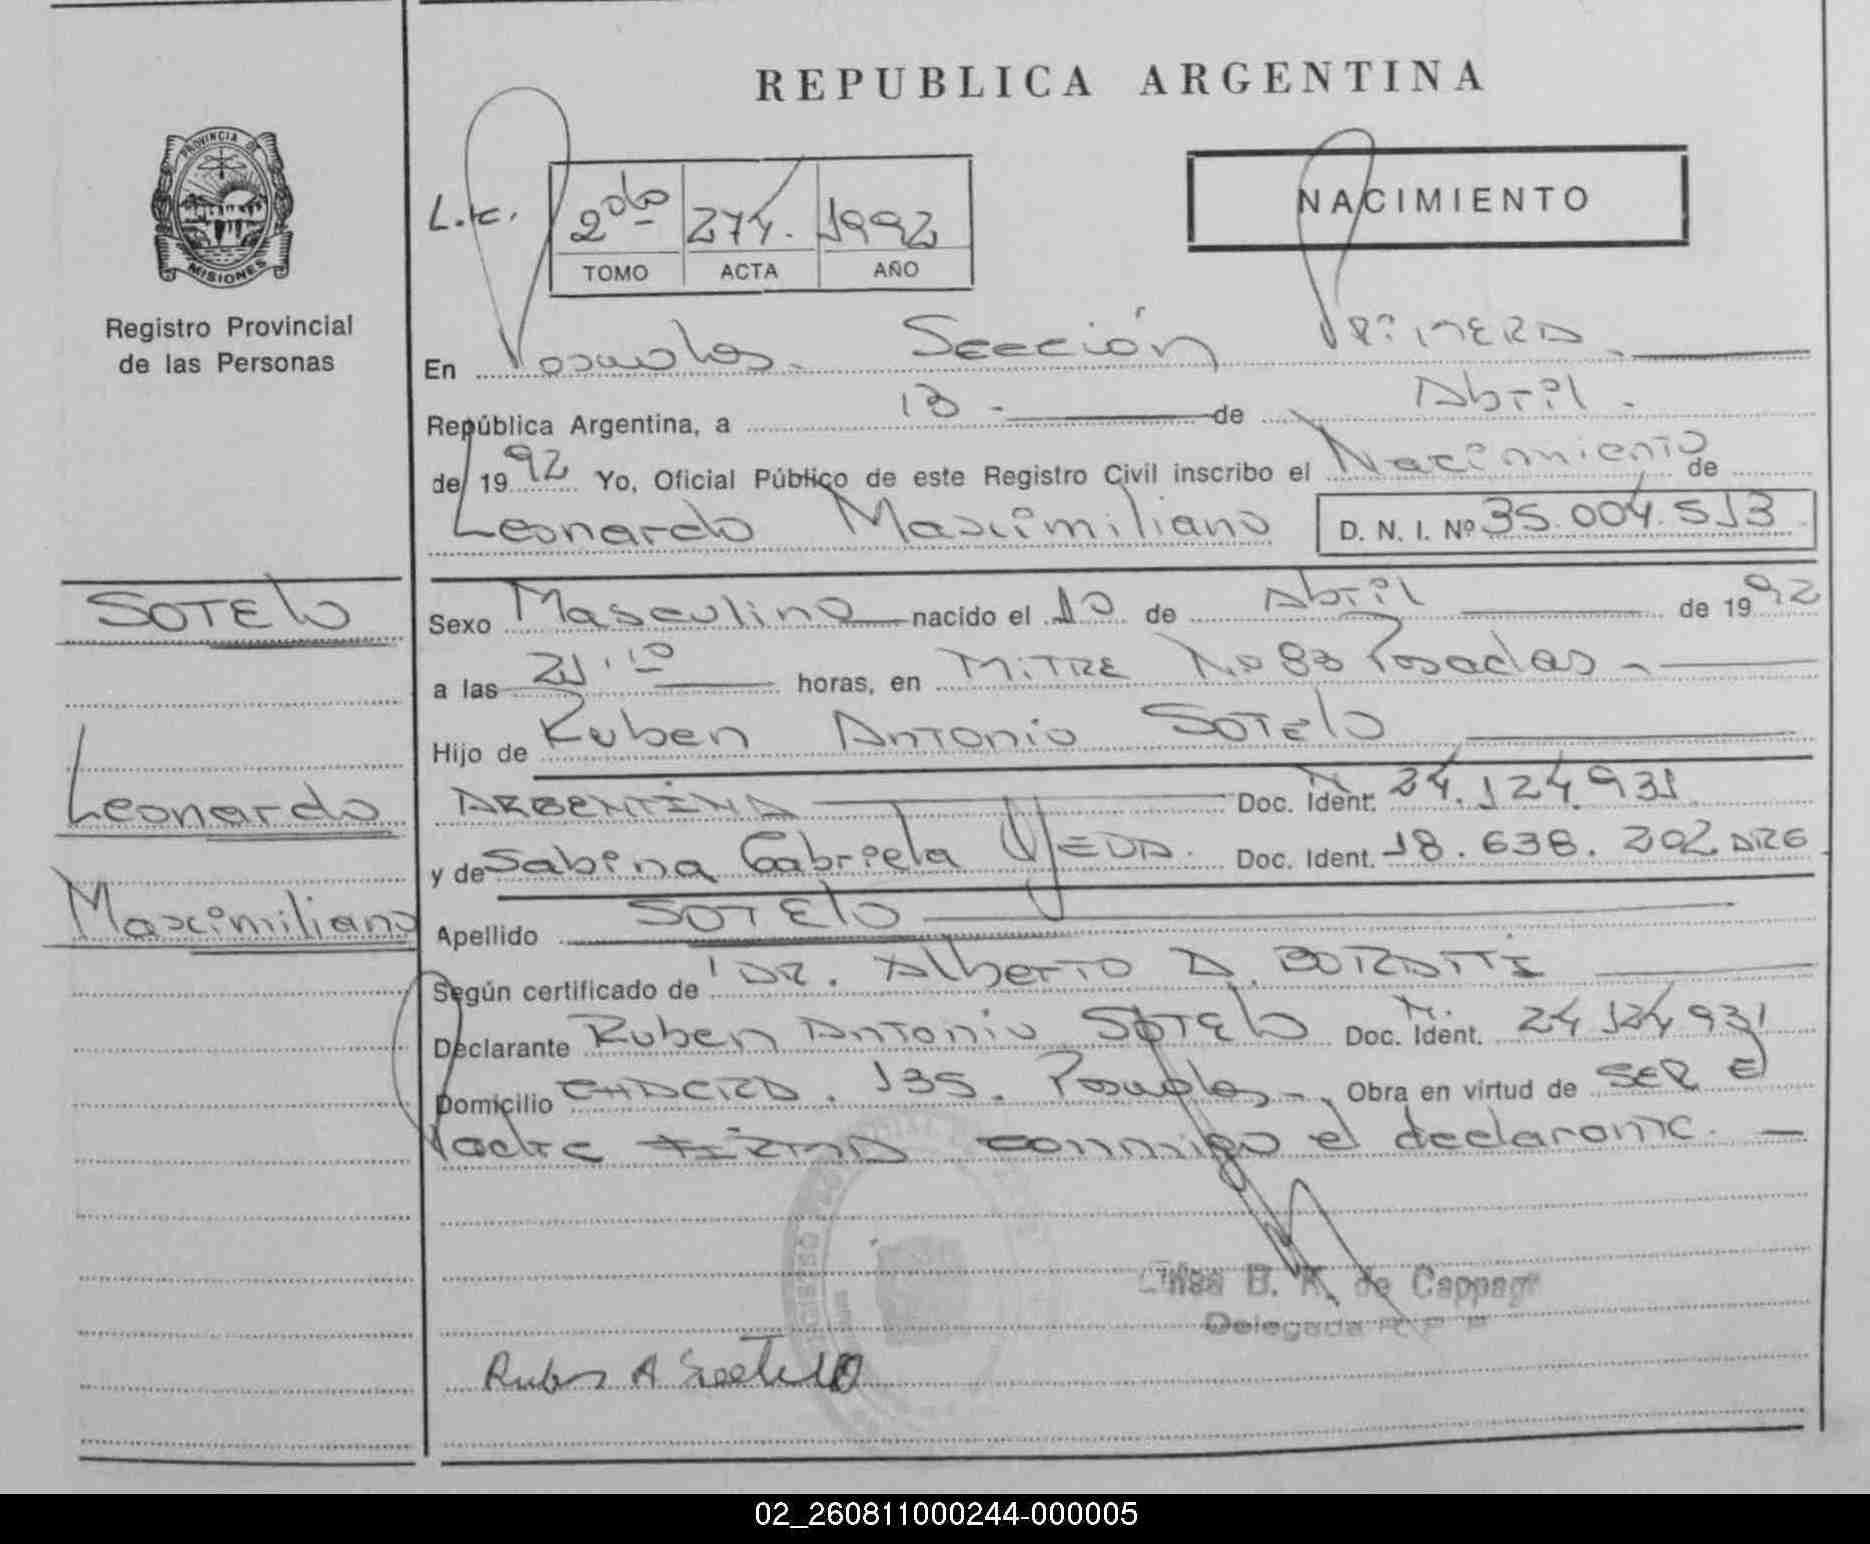 REPUBLICA ARGENTINA
PROVINCIA DE
MISIONES
Registro Provincial
de las Personas
L.c.
2do 274. 1992
TOMO ACTA AÑO
NACIMIENTO
En Posadas. Sección Primera.
República Argentina, a 13 - de Abril.
de 1992 Yo, Oficial Público de este Registro Civil inscribo el Nacimiento de
Leonardo Maximiliano D. N. I. Nº 35.004.513
SOTELO
Leonardo
Maximiliano
Sexo Masculino nacido el 10 de Abril de 1992
a las 21,10 horas, en MiTRE No 83 Posadas -
Hijo de Ruben Antonio SOTELO
ARGENTINA Doc. Ident. 24.124.931
y de Sabina Gabriela OJEDA. Doc. Ident. 18.638.202 ARG
Apellido SOTELO
Según certificado de DR. Alberto A. BORATTI
Declarante Ruben Antonio SOTELO Doc. Ident. 24 124 931
Domicilio CHACRA. 135. Posadas - Obra en virtud de SER El
Padre FIRMA conmigo el declarante. —
B. K. de
Delegada R P P
Ruben A Sotelo
02_260811000244-000005